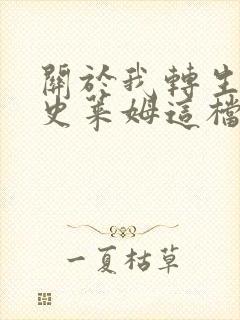 關於我轉生
史萊姆這檔
一夏枯草